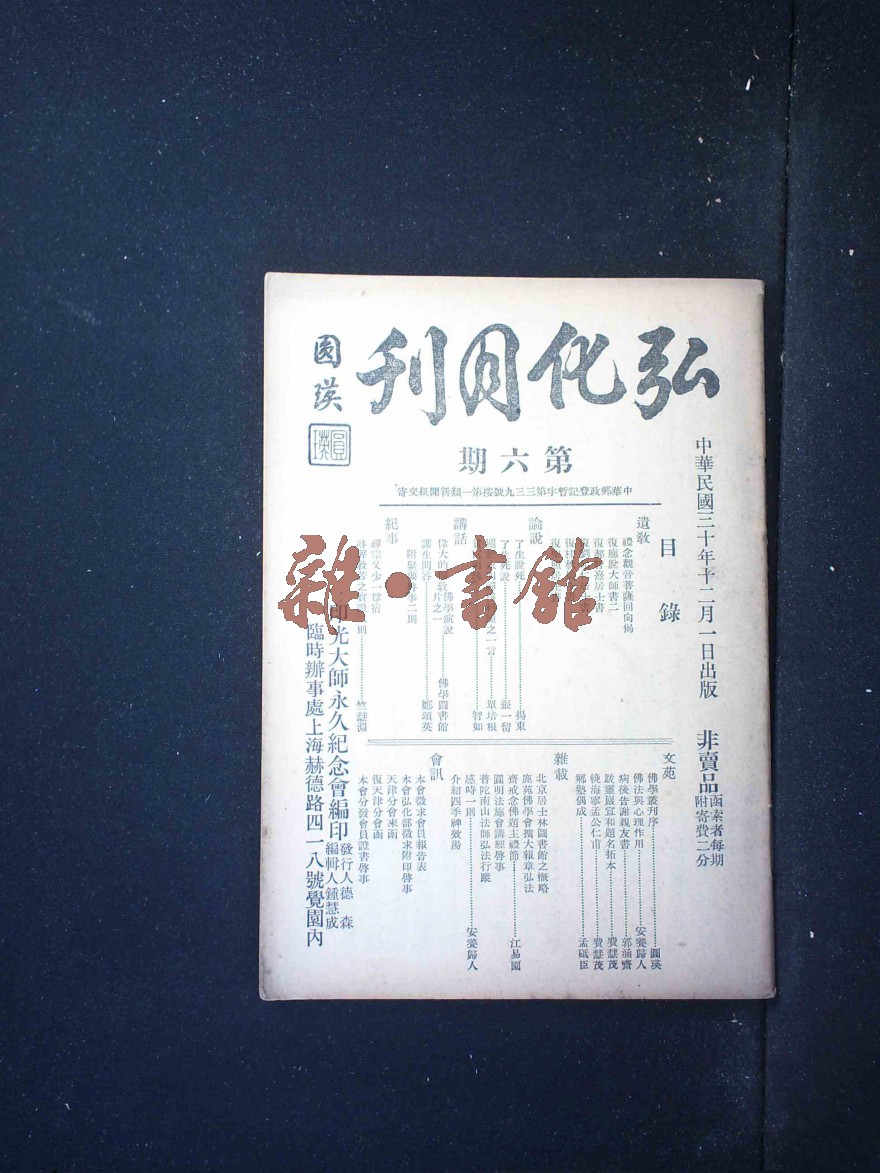 弘化月刊
圓瑛
圓瑛
第六期
中華郵政登記暫字第三三九號按第一類新聞紙交寄
中華民國三十年十二月一日出版
非賣品
函索者每期
附寄費二分
目錄
遺教
禮念觀音菩薩回向偈
復
大師書二
復
居士書
論說
了生說死
楊東
了生死說
張一留
之一言
單培根
智如
講話
偉大的
佛學演說
佛學圖書館
教片之一
護生問答
鄭頌英
附
事二則
紀事
禪宗又少一尊宿
之
則
竺慧淵
文苑
佛學叢刊序
圓瑛
佛法與心理作用
安養歸人
病後告謝親友書
郭涵齋
跋靈巖宜和題名拓本
費慧茂
輓海寧孟公仁甫
費慧茂
鄉塾偶成
孟砥臣
雜載
北京居士林圖書館之概略
鹿苑佛學會擴大報章弘法
齋戒念佛題主禮節
江易園
圓明法施會講經啓事
普陀南山法師弘法行蹤
感時一則
安養歸人
介紹四季神效湯
會訊
本會徵求會員報告表
本會弘化部徵求附印啓事
天津分會來函
復天津分會函
本會分發會員證書啓事
印光大師永久紀念會編印
發行人德森
編輯人鍾慧成
臨時辦事處上海赫德路四一八號覺園內
雜·書館